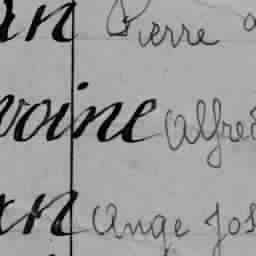 Pierre
voine Alfred
Ange Jos